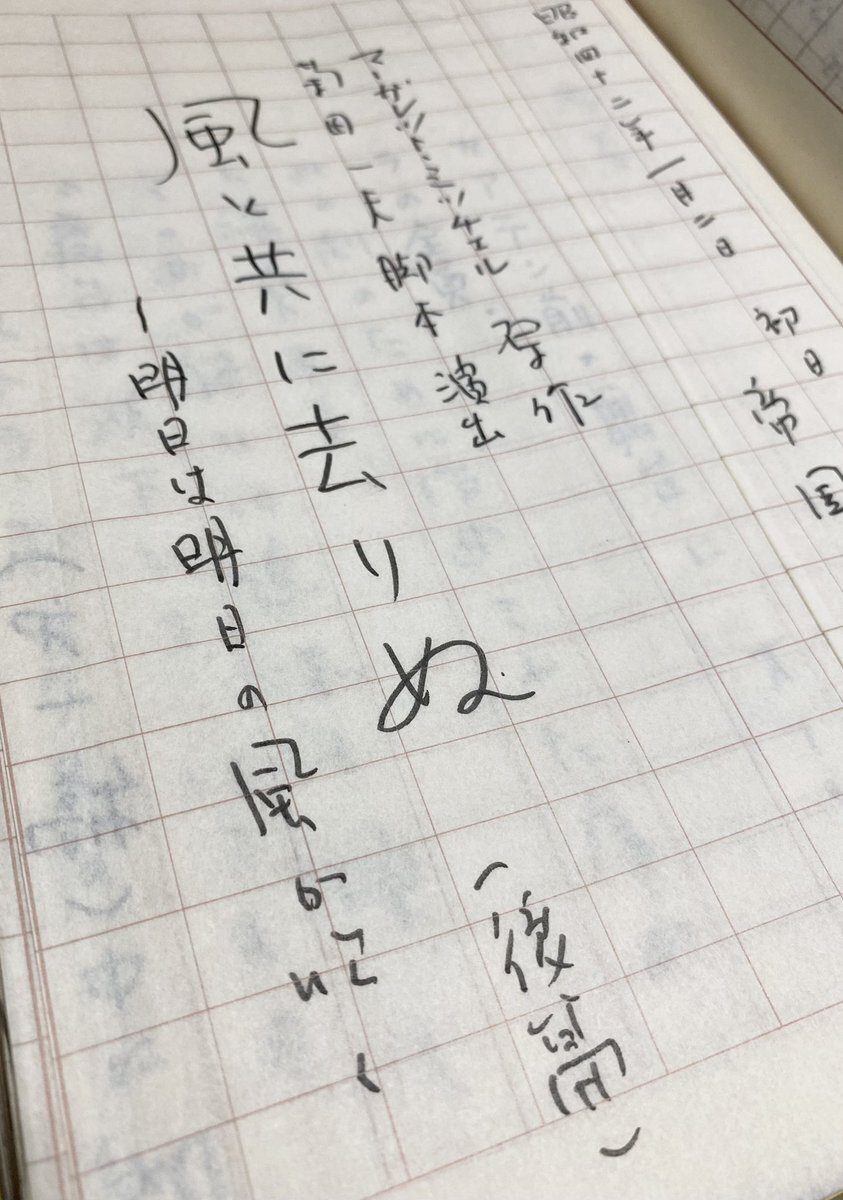 昭和四十二年一月二日 初日 帝国
マーガレット・ミッチェル 原作
菊田一夫 脚本 演出
風と共に去りぬ (後篇)
ー明日は明日の風が